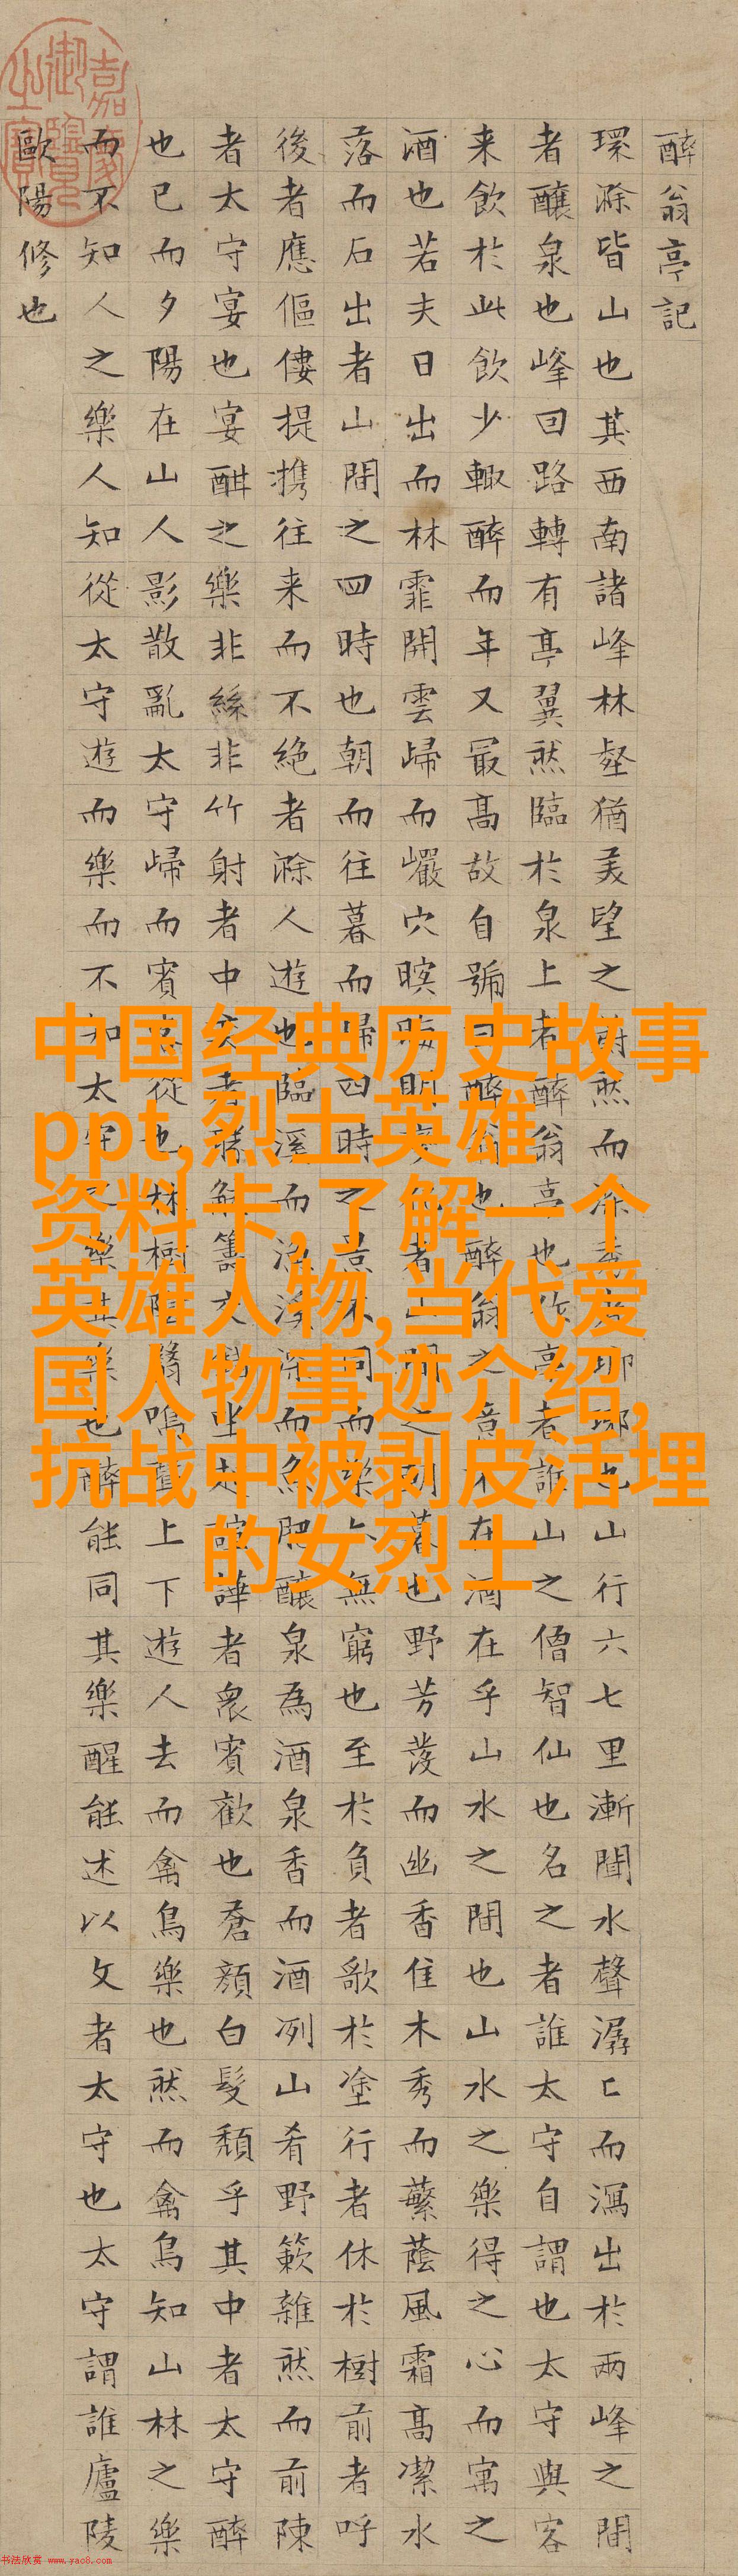 醉翁亭記
環滁皆山也其西南諸峰林壑猶美望之蔚然而深秀者瑯琊也山行六七里漸聞水聲潺〻而瀉出於兩峰之間
者釀泉也峰回路轉有亭翼然臨於泉上者醉翁亭也作亭者誰山之僧智仙也名之者誰太守自謂也太守與客
来飲於此飲少輒醉而年又最高故自號曰醉翁也醉翁之意不在酒在乎山水之間也山水之樂得之心而寓之
酒也若夫日出而林霏開雲歸而巖穴暝晦明變者山間之朝暮也野芳發而幽香佳木秀而蘩蔭風霜高潔水
落而石出者山間之四時也朝而往暮而歸四時之景不同而樂亦無窮也至於負者歌於塗行者休於樹前者呼
後者應傴僂提攜往来而不絕者滁人遊也臨溪而漁溪深而魚肥釀泉為酒泉香而酒冽山肴野簌雜然而前陳
者太守宴也宴酣之樂非絲非竹射者中奕者勝觥籌交錯坐起諠譁者衆賓歡也蒼顏白髮頹乎其中者太守醉
也已而夕陽在山人影散亂太守歸而賓客從也林樹陰翳鳴聲上下遊人去而禽鳥樂也然而禽鳥知山林之樂
而不知人之樂人知從太守遊而樂而不知太守之樂其樂也醉能同其樂醒能述以文者太守也太守謂誰廬陵
歐陽修也
嘉慶御覽之寶
中国经典历史故事
ppt,烈士英雄
资料卡,了解一个
英雄人物,当代爱
国人物事迹介绍,
抗战中被剥皮活埋
的女烈士
书法欣赏 www.yac8.com